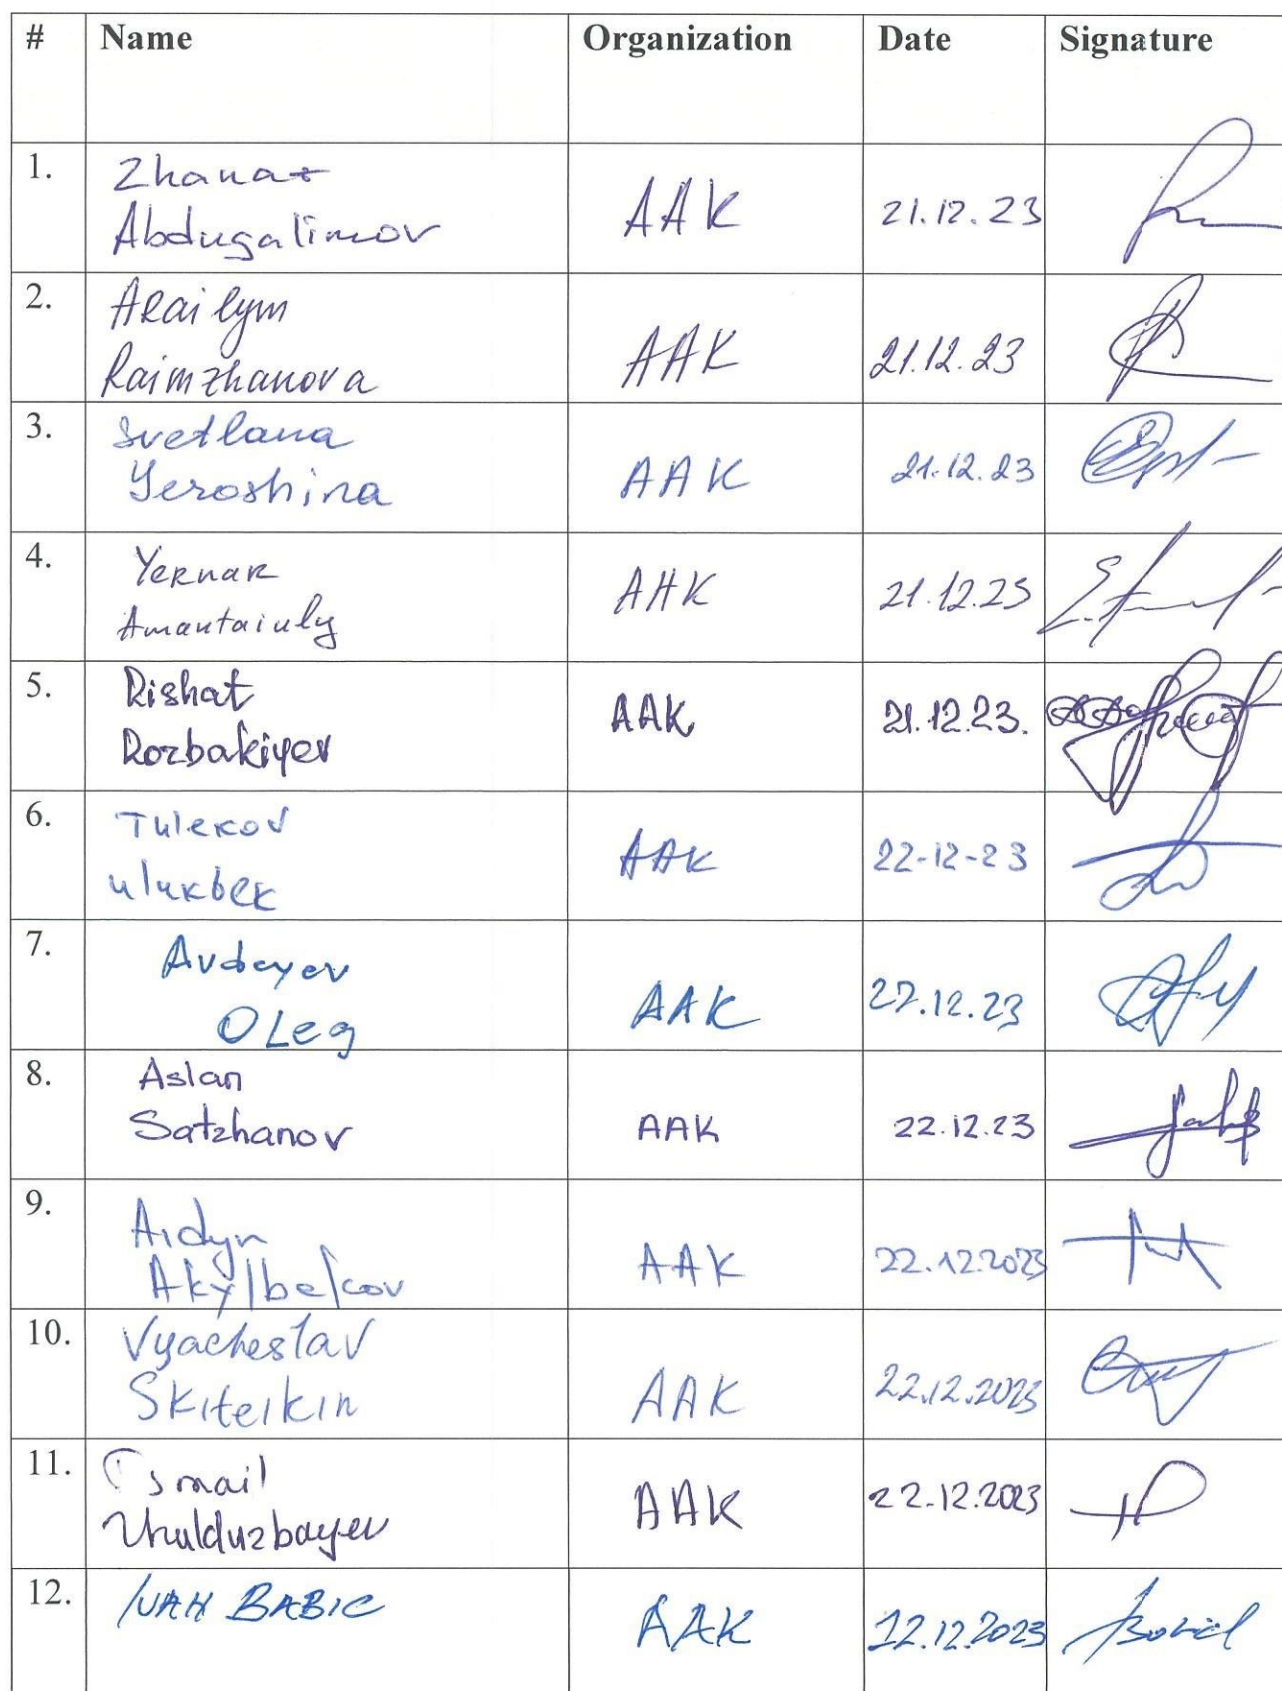 # Name Organization Date Signature
1. Zhanat
Abdugalimov AAK 21.12.23
2. Arailym
Raimzhanova AAK 21.12.23
3. Svetlana
Yeroshina AAK 21.12.23
4. Yernar
Amantaiuly AAK 21.12.23
5. Rishat
Rozbakiyev AAK 21.12.23.
6. Tulekov
Ulukbek AAK 22-12-23
7. Avdeyev
Oleg AAK 22.12.23
8. Aslan
Satzhanov AAK 22.12.23
9. Aidyn
Akylbekov AAK 22.12.2023
10. Vyacheslav
Skiteikin AAK 22.12.2023
11. Ismail
Zhulduzbayev AAK 22.12.2023
12. IVAN BABIC AAK 22.12.2023